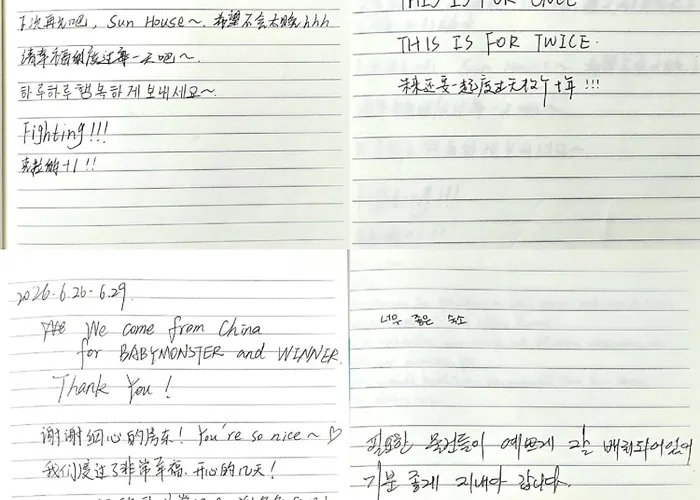 下次再见吧, Sun House~. 希望不会太晚hhh
请幸福的度过每一天吧~.
하루하루 행복하게 보내세요~.
Fighting!!!
克拉的+1!!
THIS IS FOR ONCE
THIS IS FOR TWICE.
未来还要一起度过无数个十年!!!
2026.6.26-6.29.
We come from China
for BABYMONSTER and WINNER.
Thank You!
谢谢细心的房东! You're so nice~♡
我们度过了非常幸福、开心的几天!
너무 좋은 숙소
필요한 물건들이 예쁘게 잘 배치되어있어
기분 좋게 지내다 갑니다.